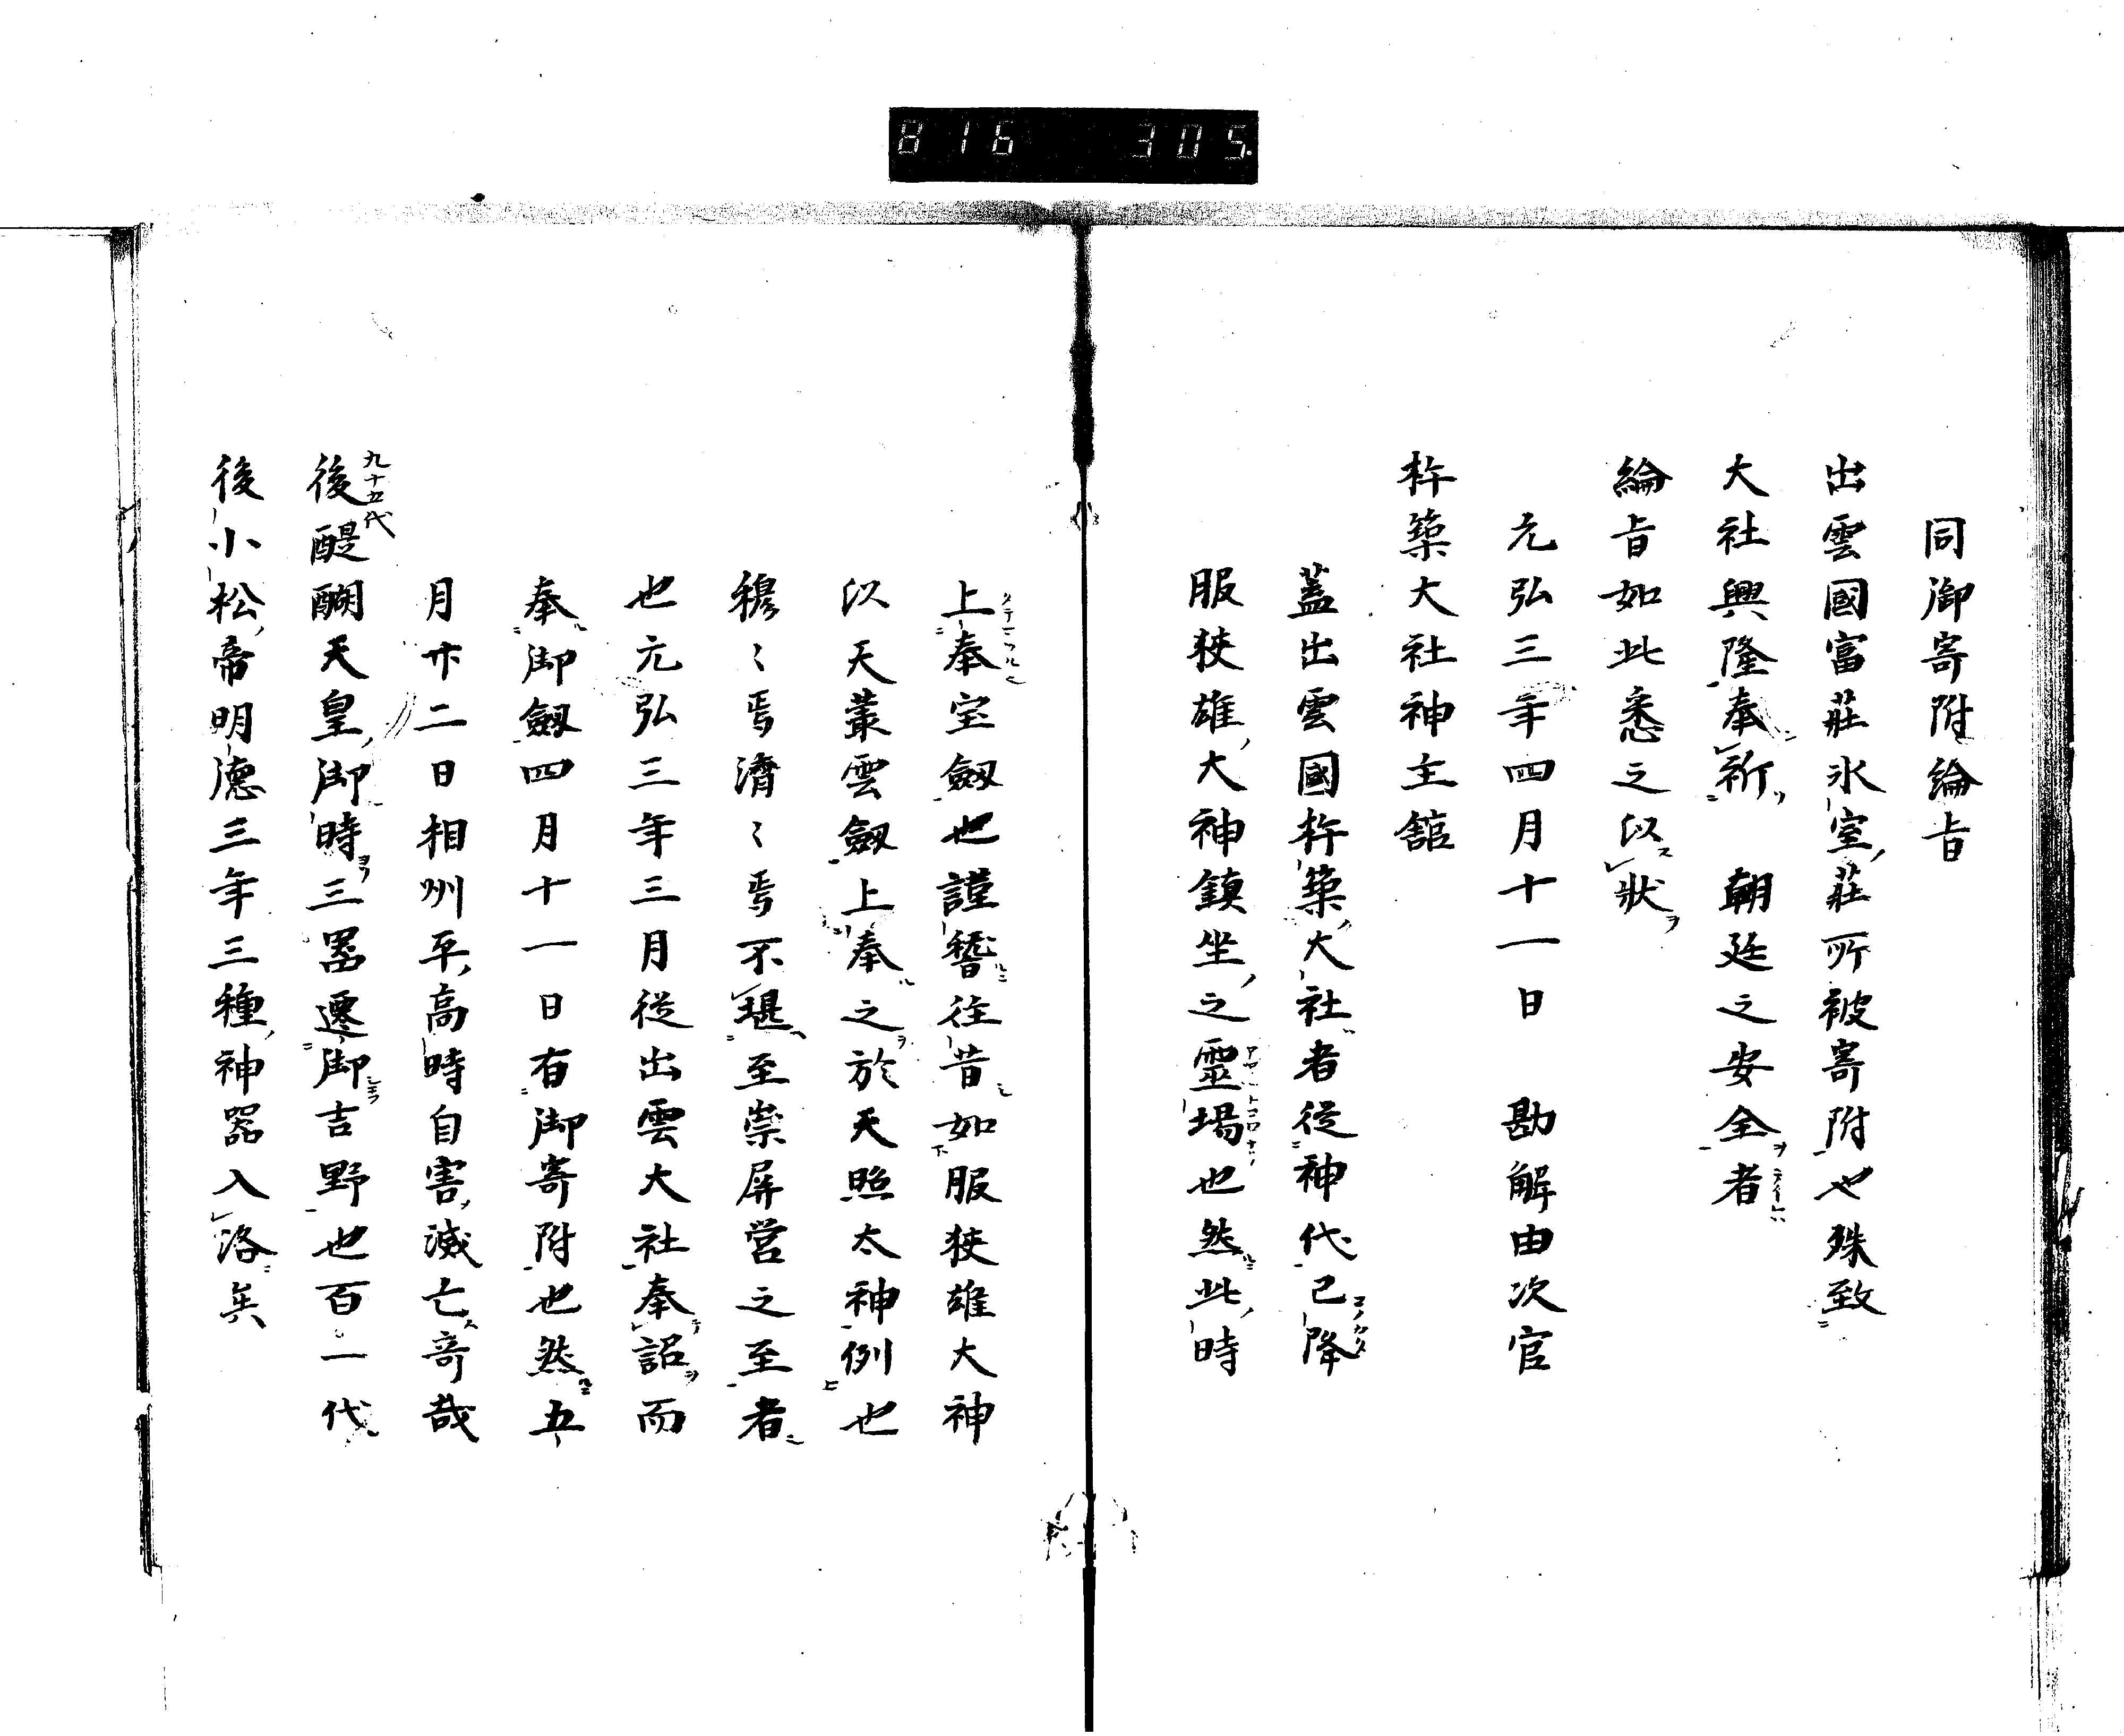 816 305.
同御寄附綸旨
出雲國富莊氷室莊所被寄附也殊致
大社興隆奉祈　朝廷之安全者
綸旨如此悉之以狀
元弘三年四月十一日　勘解由次官
杵築大社神主館
蓋出雲國杵築大社者從神代已降
服狹雄大神鎮坐之靈場也然此時
上奉宝劔也謹稽往昔如服狹雄大神
以天叢雲劔上奉之於天照太神例也
穆〻焉濟〻焉不堪至崇屏営之至者
也元弘三年三月從出雲大社奉詔而
奉御劔四月十一日有御寄附也然五
月廾二日相州平高時自害滅亡竒哉
九十五代
後醍醐天皇御時三噐遷御吉野也百一代
後小松帝明德三年三種神器入洛矣